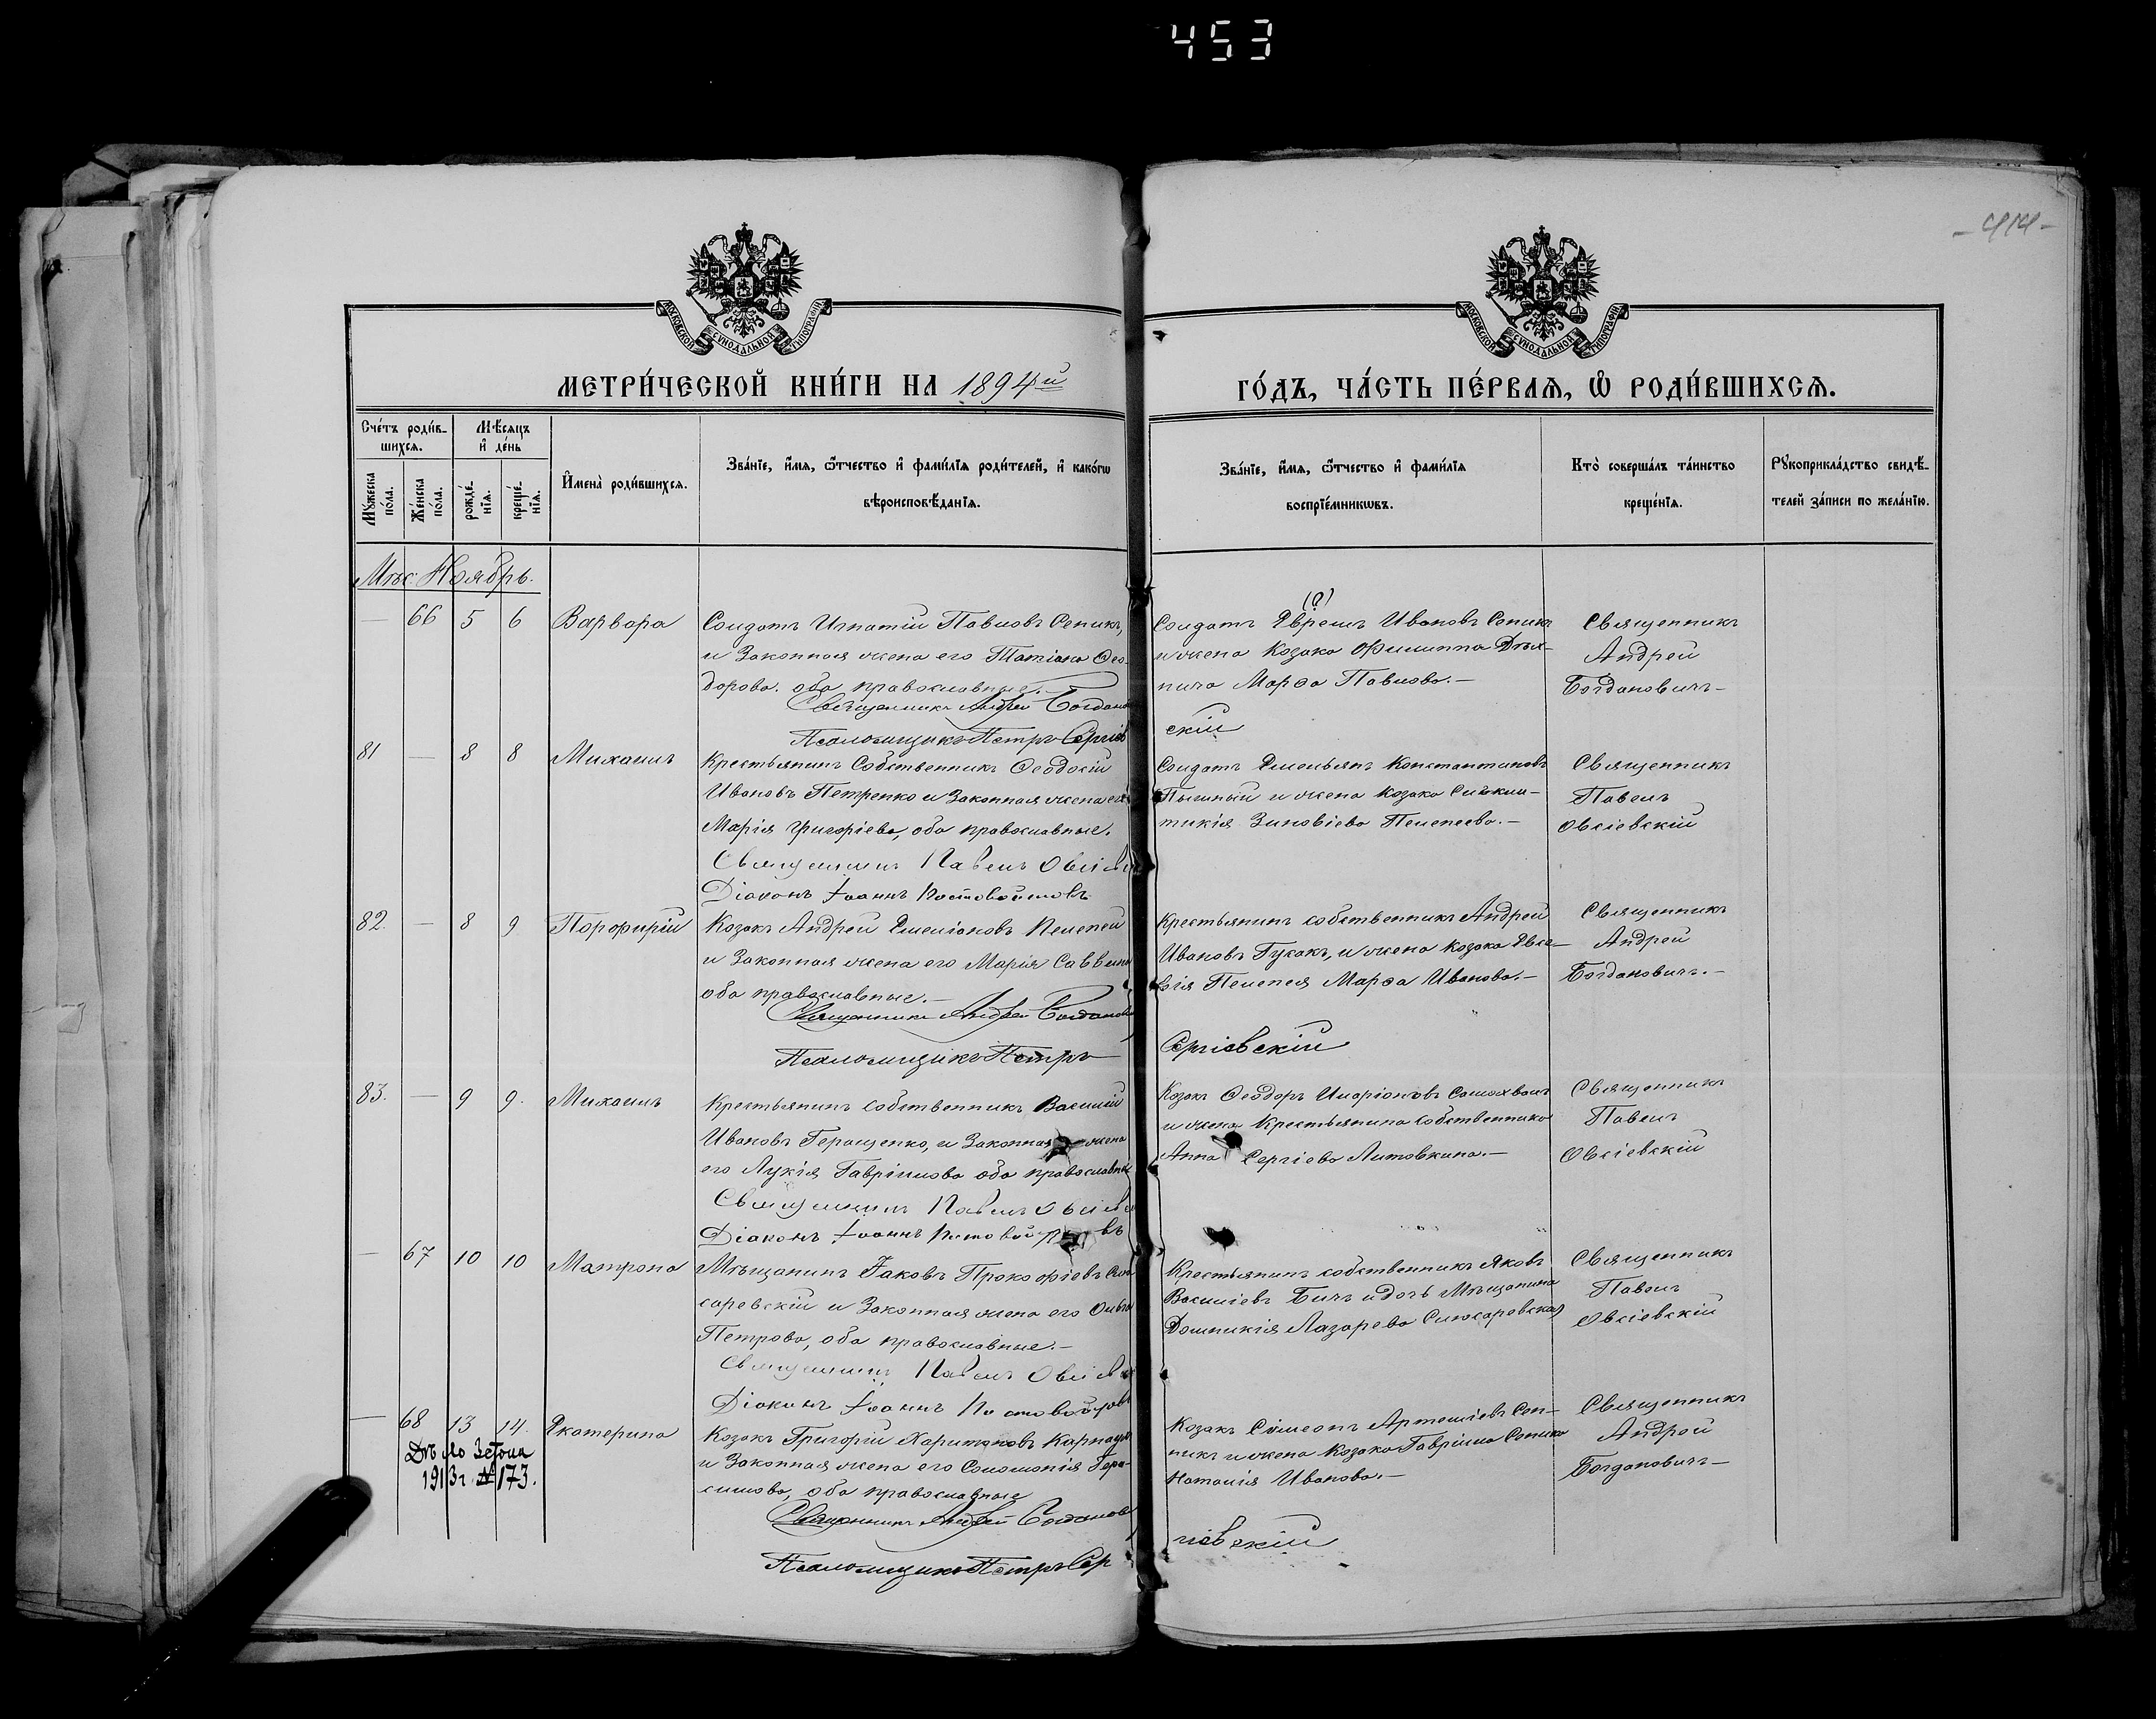 453
414
МОСКОВСКОЙ СѴНОДАЛЬНОЙ ТИПОГРАФІИ
МОСКОВСКОЙ СѴНОДАЛЬНОЙ ТИПОГРАФІИ
МЕТРИ́ЧЕСКОЙ КНИ́ГИ НА 1894й
ГО́ДЪ, ЧА́СТЬ ПЕ́РВАѦ, Ѡ҆ РОДИ́ВШИХСѦ.
Сче́тъ роди́в-
шихсѧ.
Мѣ́сѧцъ
и҆ де́нь
Мꙋ́жеска по́ла.
Же́нска по́ла.
рожде́-
нїѧ.
креще́-
нїѧ.
И҆мена̀ роди́вшихсѧ.
Зва́нїе, и҆́мѧ, ѻ҆́тчество и҆ фами́лїѧ роди́телей, и҆ како́гѡ
вѣроисповѣ́данїѧ.
Зва́нїе, и҆́мѧ, ѻ҆́тчество и҆ фами́лїѧ
воспрїе́мникѡвъ.
Кто̀ соверша́лъ та́инство
креще́нїѧ.
Рꙋкоприкла́дство свидѣ́-
телей за́писи по жела́нїю.
Мѣс. Ноябрь.
— 66 5 6 Варвара
Солдатъ Игнатій Павловъ Сепикъ,
и Законная жена его Татіана Ѳео-
дорова. оба православные.—
Священникъ Андрей Богданов
Псаломщикъ Петръ Сергіев
(?)
Солдатъ Ефремъ Ивановъ Сепикъ
и жена Козака Филиппа
Марѳа Павлова.—
скій
Священникъ
Андрей
Богдановичъ—
81 — 8 8 Михаилъ
Крестьянинъ Собственникъ Ѳеодосій
Ивановъ Петренко и Законная жена его
Марія Григоріева, оба православные.
Священникъ Павелъ Овсіевск
Діаконъ Іоаннъ Постовойтовъ
Солдатъ Емельянъ Константиновъ
Пышный и жена Козака
Зиновіева Пелепеева.—
Священникъ
Павелъ
Овсіевскій
82. — 8 9 Порфирій
Козакъ Андрей Емеліановъ Пелепей
и Законная жена его Марія Саввина
оба православные.—
Священникъ Андрей Богданов
Псаломщикъ Петръ
Крестьянинъ собственникъ Андрей
Ивановъ Гукакъ, и жена Козака Евсе-
вія Пелепея Марѳа Иванова.—
Сергіевскій
Священникъ
Андрей
Богдановичъ.—
83. — 9 9. Михаилъ
Крестьянинъ собственникъ Василій
Ивановъ Геращенко, и Законная жена
его Лукія Гавріилова оба православные
Священникъ Павелъ Овсіев
Діаконъ Іоаннъ въ
Козакъ Ѳеодоръ Иларіоновъ Самохвалъ
и жена Крестьянина собственника
Анна Сергіева Литовкина.—
Священникъ
Павелъ
Овсіевскій
— 67 10 10 Матрона
Мѣщанинъ Іаковъ Прокофіевъ Слю
саревскій и Законная жена его Ольга
Петрова, оба православные.—
Священникъ Павелъ Овсіевск
Діаконъ Іоаннъ Постовойтовъ
Крестьянинъ собственникъ Яковъ
Василіевъ Бичъ и дочь Мѣщанина
Домникія Лазарева Слюсаревская
Священникъ
Павелъ
Овсіевскій
— 68 13 14. Екатерина
1913г. №173.
Козакъ Григорій Харитоновъ Карнаухъ
и Законная жена его Соломонія Гера-
симова, оба православные
Священникъ Андрей Богданов
Псаломщикъ Петръ Сер
Козакъ Сѵмеонъ Артеміевъ Сеп-
никъ и жена Козака Гавріила Сепика
Наталія Иванова.—
гіевскій
Священникъ
Андрей
Богдановичъ—